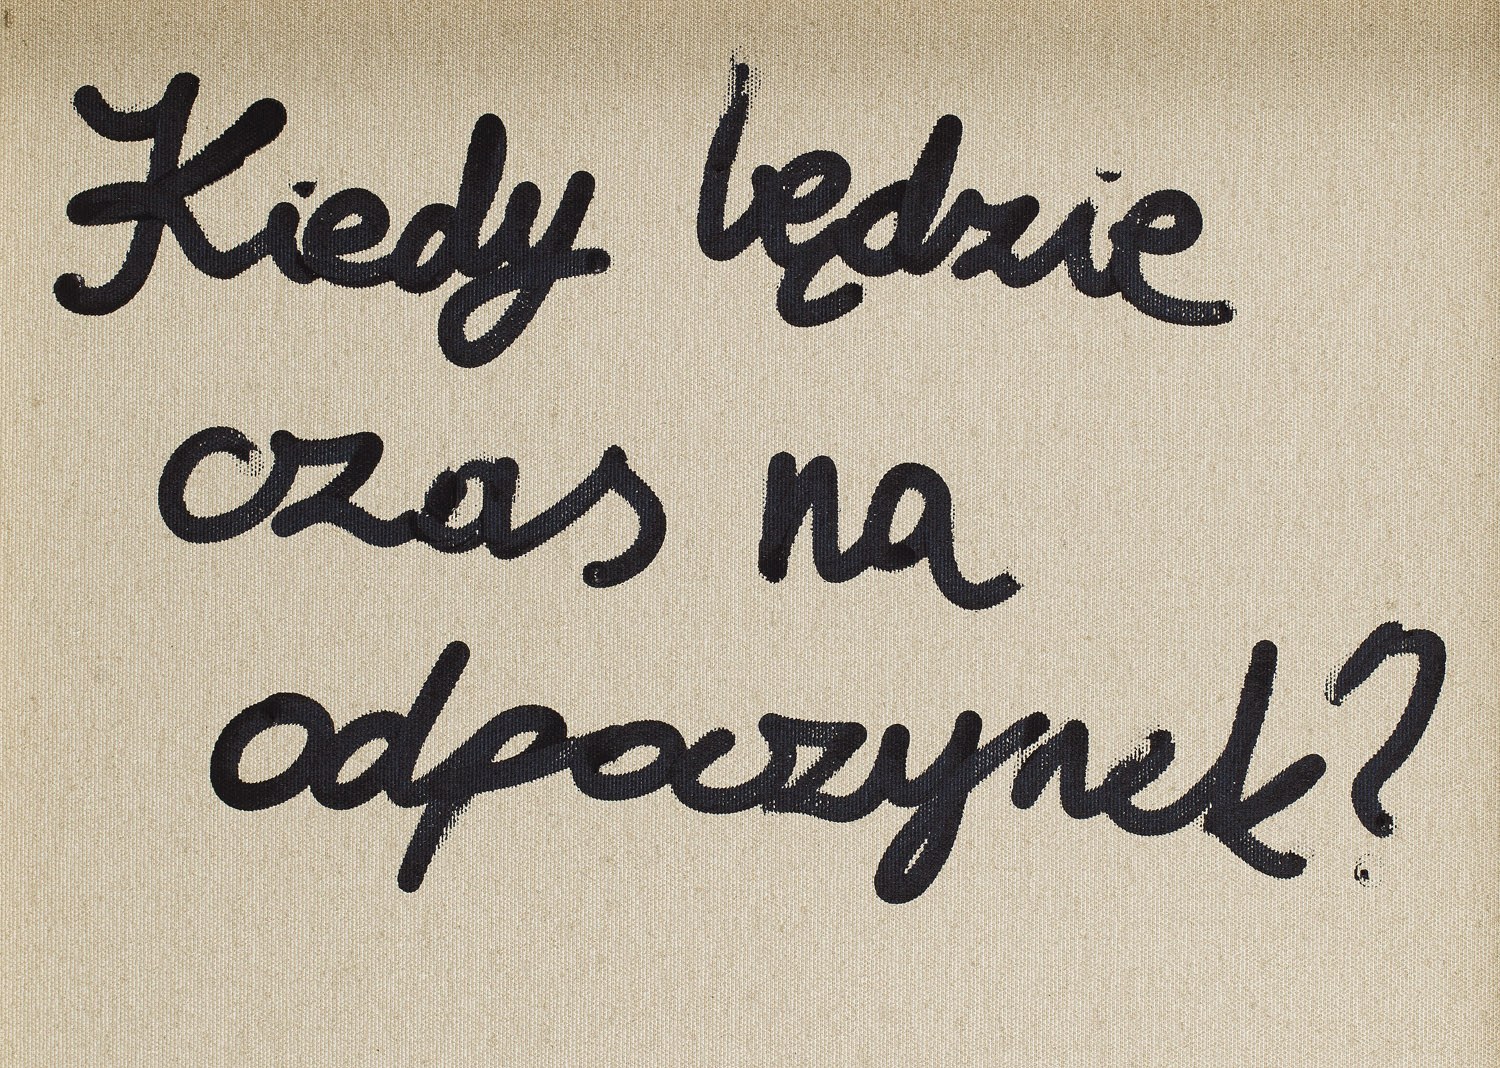 Kiedy będzie
czas na
odpoczynek?